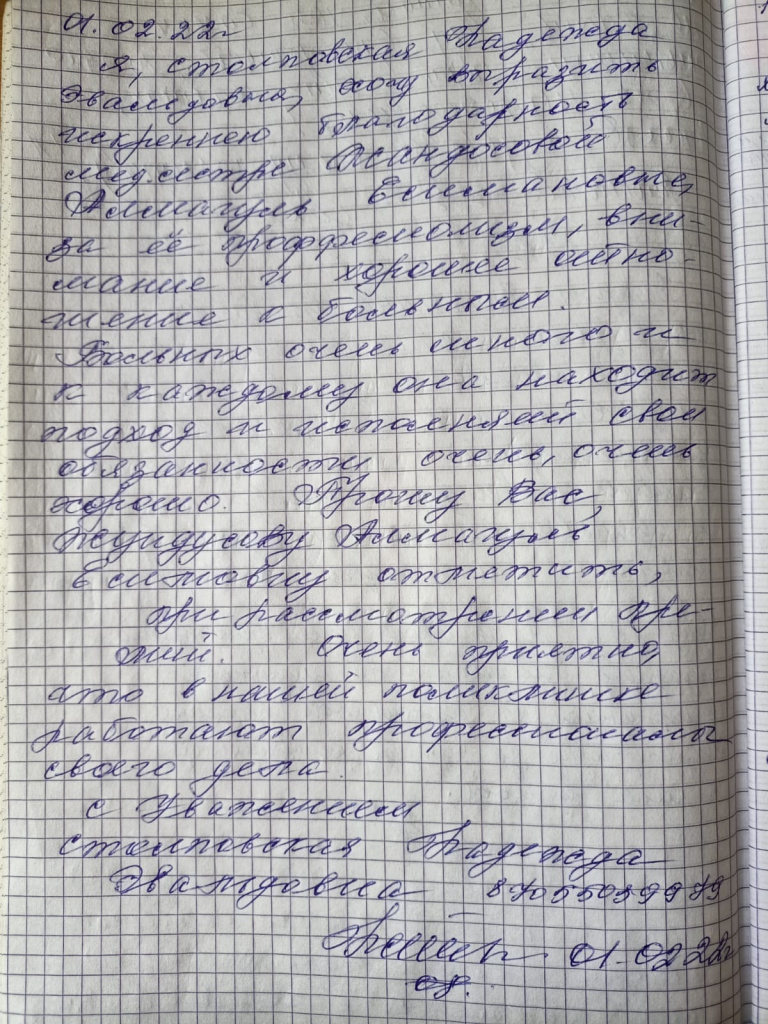 01.02.22г
Я, Столповская Надежда
Эвальдовна, хочу выразить
искреннею благодарность
мед.сестре Жандосовой
Алмагуль Есимановне,
за её проффесионализм, вни-
мание и хорошее отно-
шение к больным.
Больных очень много и
к каждому она находит
подход и исполняет свои
обязанности очень, очень
хорошо. Прошу Вас,
Алмагуль
отметить,
при рассмотрении пре-
мий. Очень приятно,
что в нашей поликлинике
работают профессионалы
своего дела.
с Уважением
Столповская Надежда
Эвальдовна 87055039979
01.02.22г